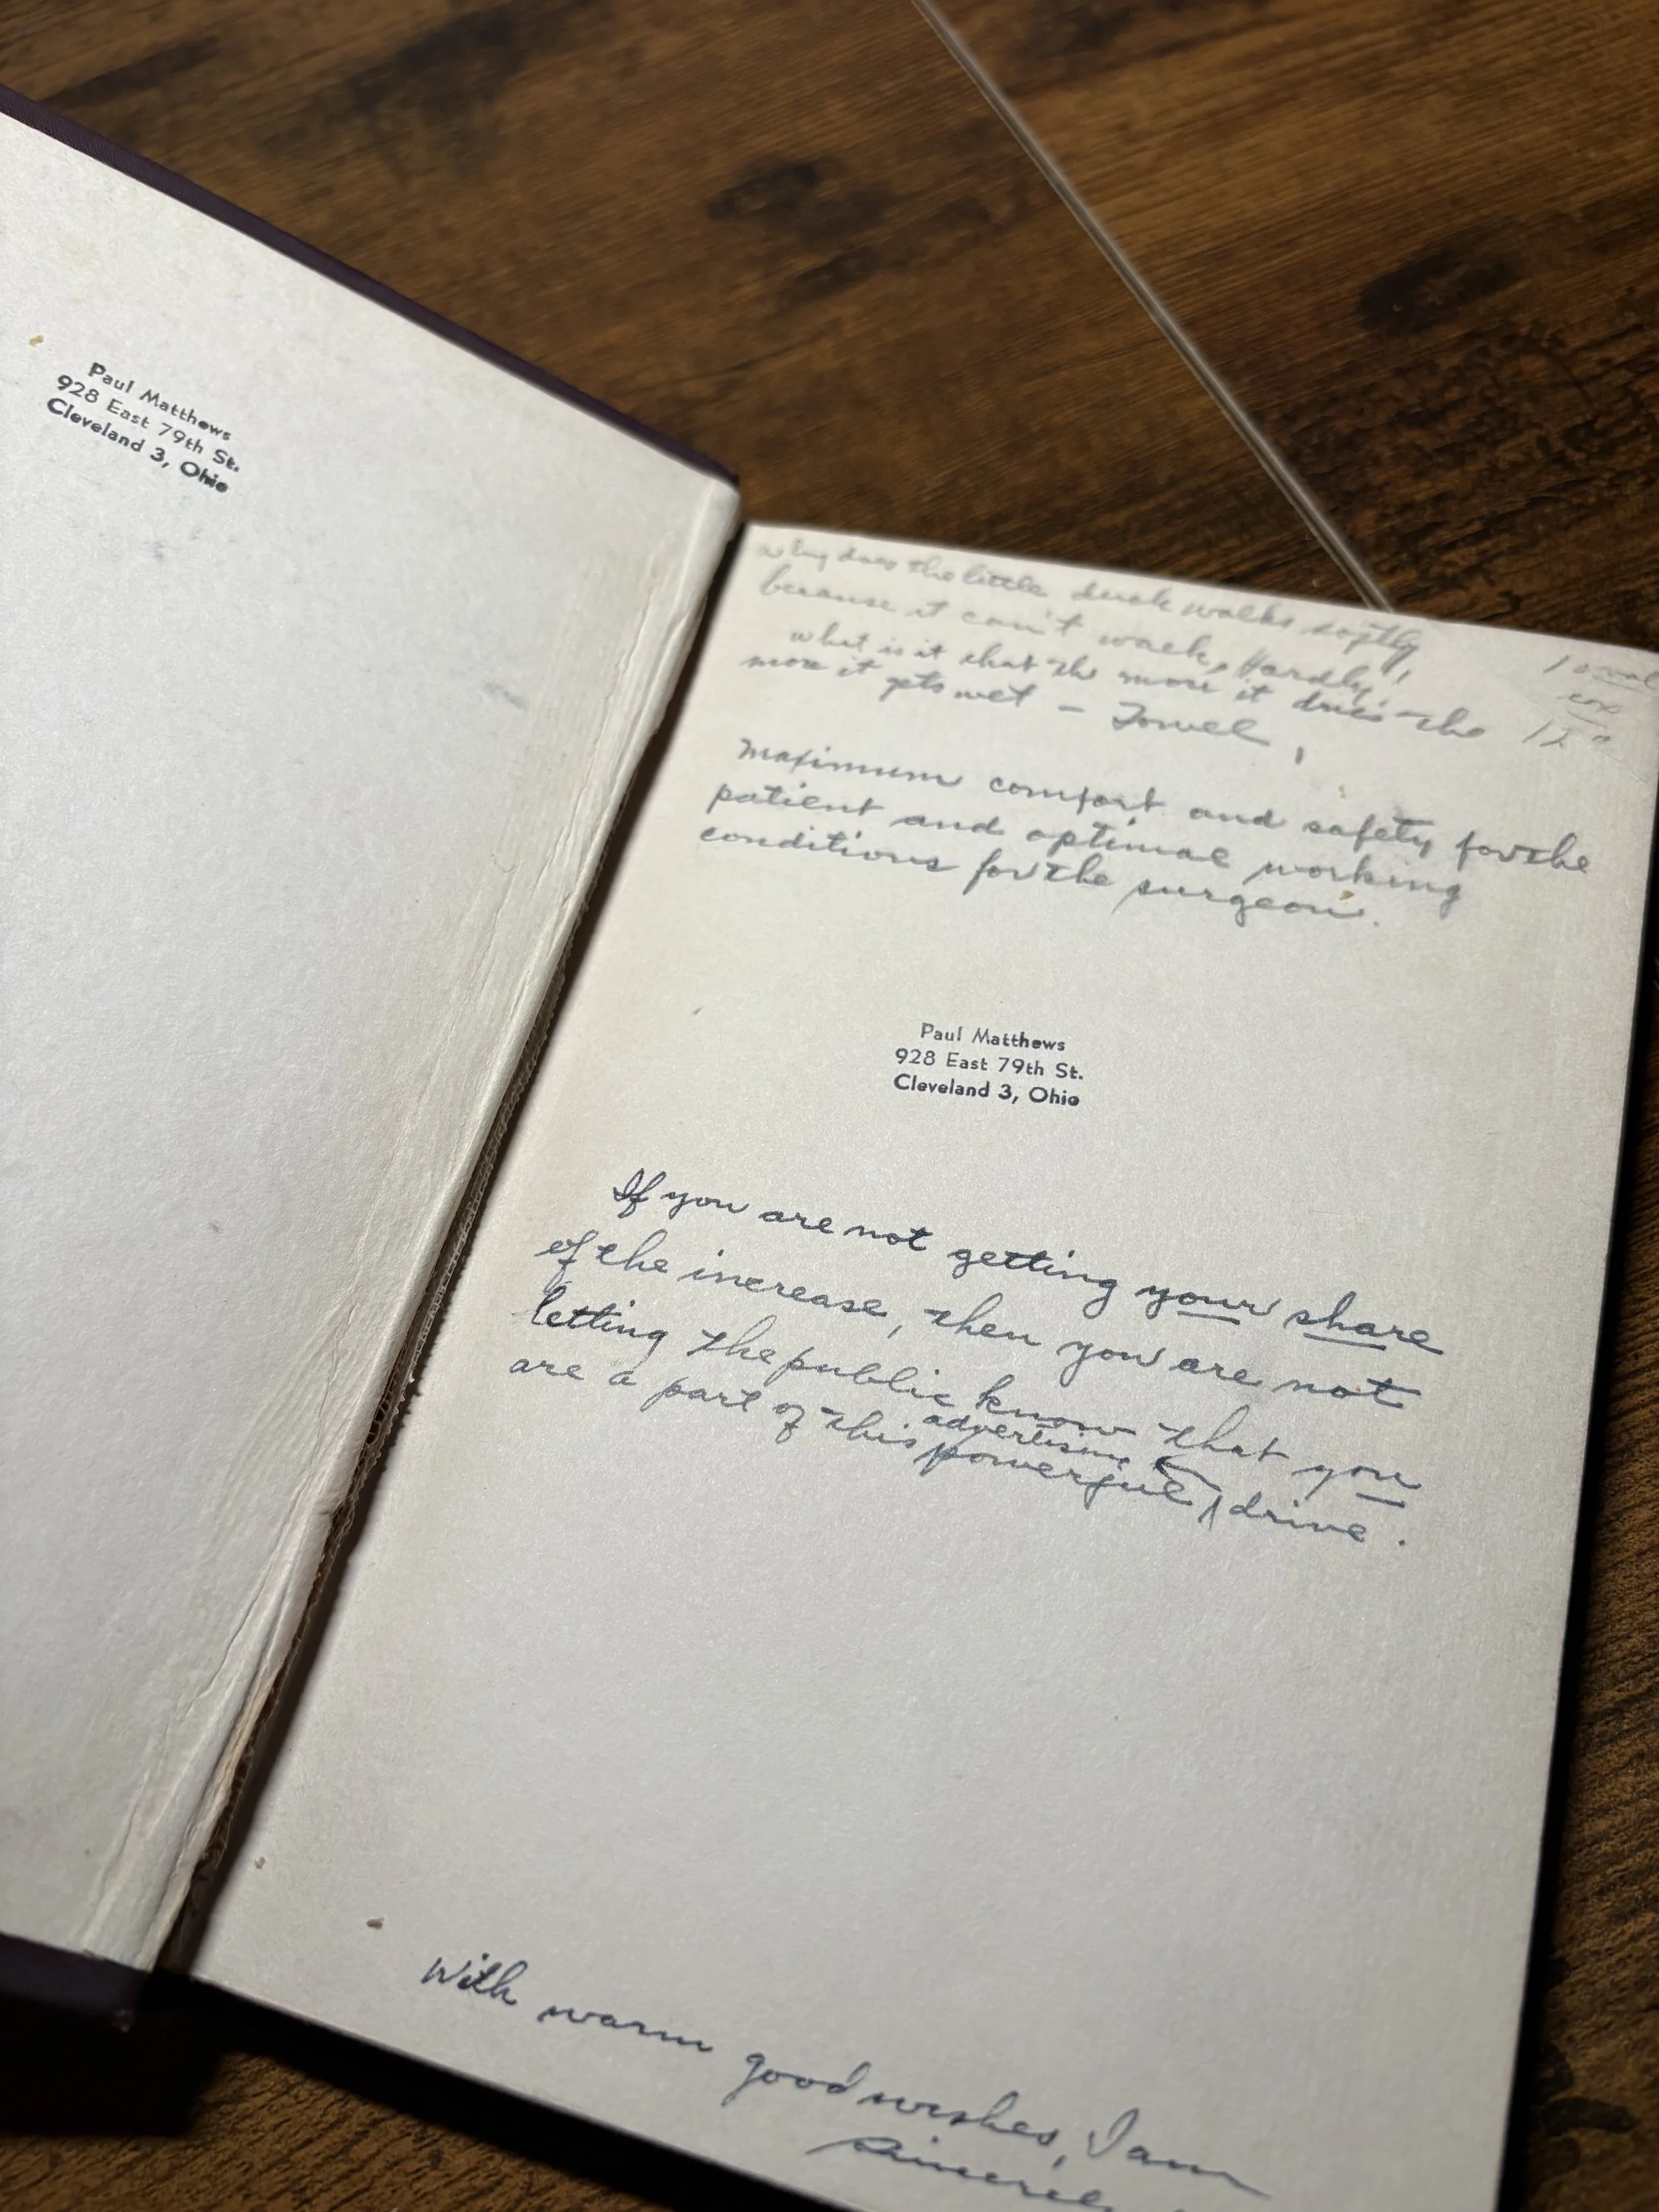 Paul Matthews
928 East 79th St.
Cleveland 3, Ohio
why does the little duck walks softly
because it can't walk, Hardly!
what is it that the more it dries the
more it gets wet - Towel
maximum comfort and safety for the
patient and optimal working
conditions for the surgeon.
Paul Matthews
928 East 79th St.
Cleveland 3, Ohio
If you are not getting your share
of the increase, then you are not
letting the public know that you
are a part of this powerful advertising drive.
With warm good wishes, I am